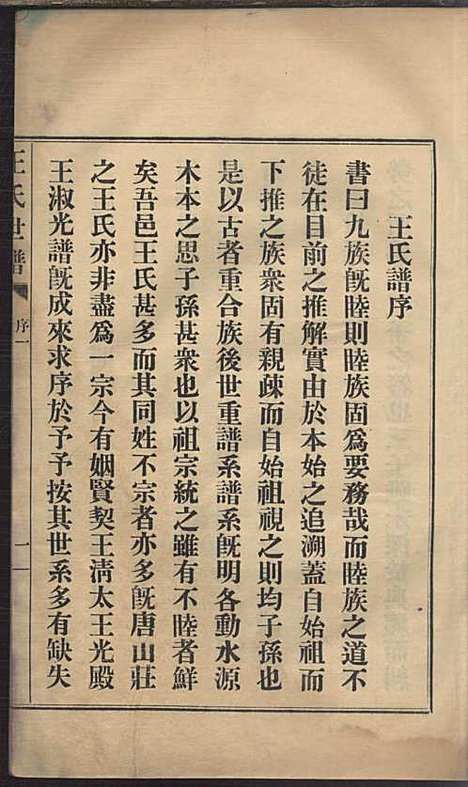 王氏譜序
書曰九族旣睦則睦族固爲要務哉而睦族之道不
徒在目前之推解實由於本始之追溯蓋自始祖而
下推之族衆固有親疎而自始祖視之則均子孫也
是以古者重合族後世重譜系譜系旣明各動水源
木本之思子孫甚衆也以祖宗統之雖有不睦者鮮
矣吾邑王氏甚多而其同姓不宗者亦多旣唐山莊
之王氏亦非盡爲一宗今有姻賢契王清太王光殿
王淑光譜旣成來求序於予予按其世系多有缺失
王氏世譜
序一
一